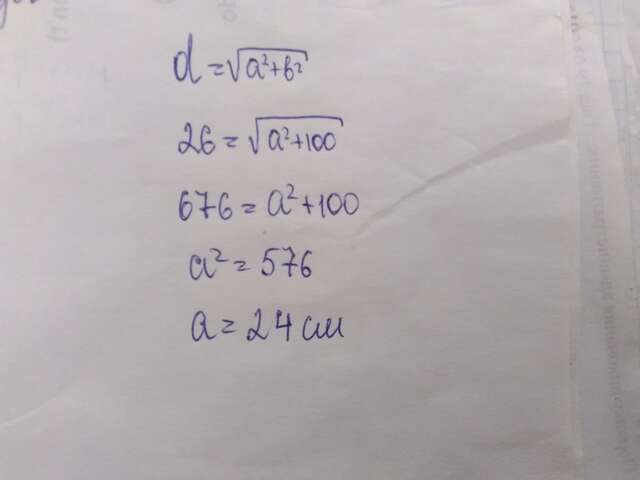 d = √a²+b²
26 = √a²+100
676 = a²+100
a² = 576
a = 24 см